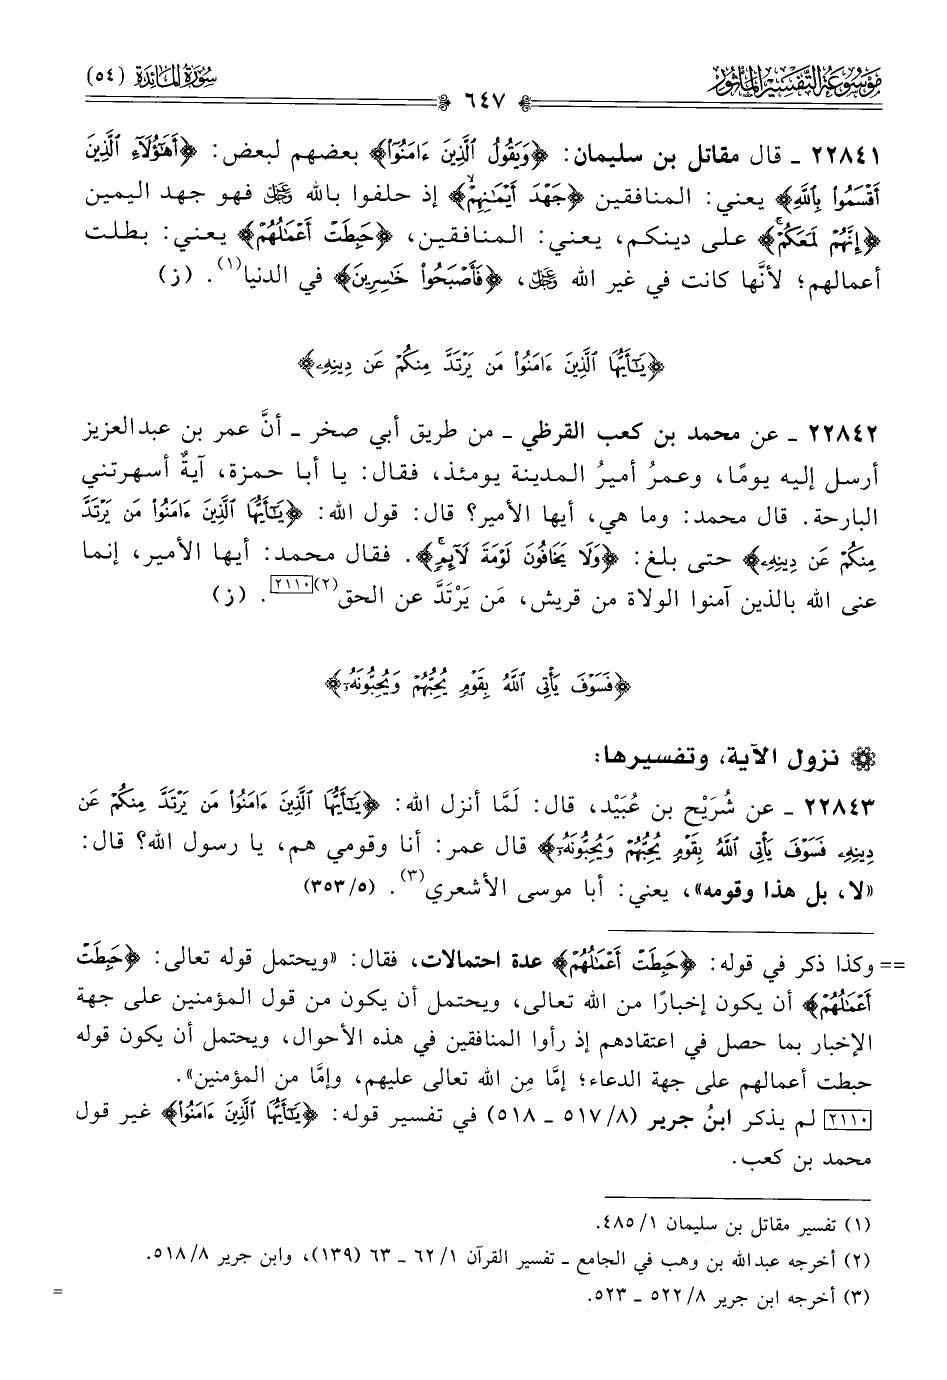 موسوعة التفسير المأثور
سورة المائدة (٥٤)
٦٤٧
٢٢٨٤١ ـ قال مقاتل بن سليمان: ﴿وَيَقُولُ ٱلَّذِينَ ءَامَنُوٓا۟﴾ بعضهم لبعض: ﴿أَهَـٰٓؤُلَآءِ ٱلَّذِينَ
أَقْسَمُوا۟ بِٱللَّهِ﴾ يعني: المنافقين ﴿جَهْدَ أَيْمَـٰنِهِمْ﴾ إذ حلفوا بالله ﷻ فهو جهد اليمين
﴿إِنَّهُمْ لَمَعَكُمْ﴾ على دينكم، يعني: المنافقين، ﴿حَبِطَتْ أَعْمَـٰلُهُمْ﴾ يعني: بطلت
أعمالهم؛ لأنَّها كانت في غير الله ﷻ، ﴿فَأَصْبَحُوا۟ خَـٰسِرِينَ﴾ في الدنيا(١). (ز)
﴿يَـٰٓأَيُّهَا ٱلَّذِينَ ءَامَنُوا۟ مَن يَرْتَدَّ مِنكُمْ عَن دِينِهِۦ﴾
٢٢٨٤٢ ـ عن محمد بن كعب القرظي ـ من طريق أبي صخر ـ أنَّ عمر بن عبدالعزيز
أرسل إليه يومًا، وعمرُ أميرُ المدينة يومئذ، فقال: يا أبا حمزة، آيةٌ أسهرتني
البارحة. قال محمد: وما هي، أيها الأمير؟ قال: قول الله: ﴿يَـٰٓأَيُّهَا ٱلَّذِينَ ءَامَنُوا۟ مَن يَرْتَدَّ
مِنكُمْ عَن دِينِهِۦ﴾ حتى بلغ: ﴿وَلَا يَخَافُونَ لَوْمَةَ لَآئِمٍ﴾. فقال محمد: أيها الأمير، إنما
عنى الله بالذين آمنوا الولاة من قريش، مَن يَرْتَدَّ عن الحق(٢)٢١١٠. (ز)
﴿فَسَوْفَ يَأْتِى ٱللَّهُ بِقَوْمٍ يُحِبُّهُمْ وَيُحِبُّونَهُۥٓ﴾
نزول الآية، وتفسيرها:
٢٢٨٤٣ ـ عن شُرَيْح بن عُبَيْد، قال: لَمَّا أنزل الله: ﴿يَـٰٓأَيُّهَا ٱلَّذِينَ ءَامَنُوا۟ مَن يَرْتَدَّ مِنكُمْ عَن
دِينِهِۦ فَسَوْفَ يَأْتِى ٱللَّهُ بِقَوْمٍ يُحِبُّهُمْ وَيُحِبُّونَهُۥٓ﴾ قال عمر: أنا وقومي هم، يا رسول الله؟ قال:
«لا، بل هذا وقومه»، يعني: أبا موسى الأشعري(٣). (٣٥٣/٥)
== وكذا ذكر في قوله: ﴿حَبِطَتْ أَعْمَـٰلُهُمْ﴾ عدة احتمالات، فقال: «ويحتمل قوله تعالى: ﴿حَبِطَتْ
أَعْمَـٰلُهُمْ﴾ أن يكون إخبارًا من الله تعالى، ويحتمل أن يكون من قول المؤمنين على جهة
الإخبار بما حصل في اعتقادهم إذ رأوا المنافقين في هذه الأحوال، ويحتمل أن يكون قوله
حبطت أعمالهم على جهة الدعاء؛ إمَّا مِن الله تعالى عليهم، وإمَّا من المؤمنين».
٢١١٠ لم يذكر ابنُ جرير (٥١٧/٨ ـ ٥١٨) في تفسير قوله: ﴿يَـٰٓأَيُّهَا ٱلَّذِينَ ءَامَنُوا۟﴾ غير قول
محمد بن كعب.
(١) تفسير مقاتل بن سليمان ٤٨٥/١.
(٢) أخرجه عبدالله بن وهب في الجامع ـ تفسير القرآن ٦٢/١ ـ ٦٣ (١٣٩)، وابن جرير ٥١٨/٨.
(٣) أخرجه ابن جرير ٥٢٢/٨ ـ ٥٢٣.
=